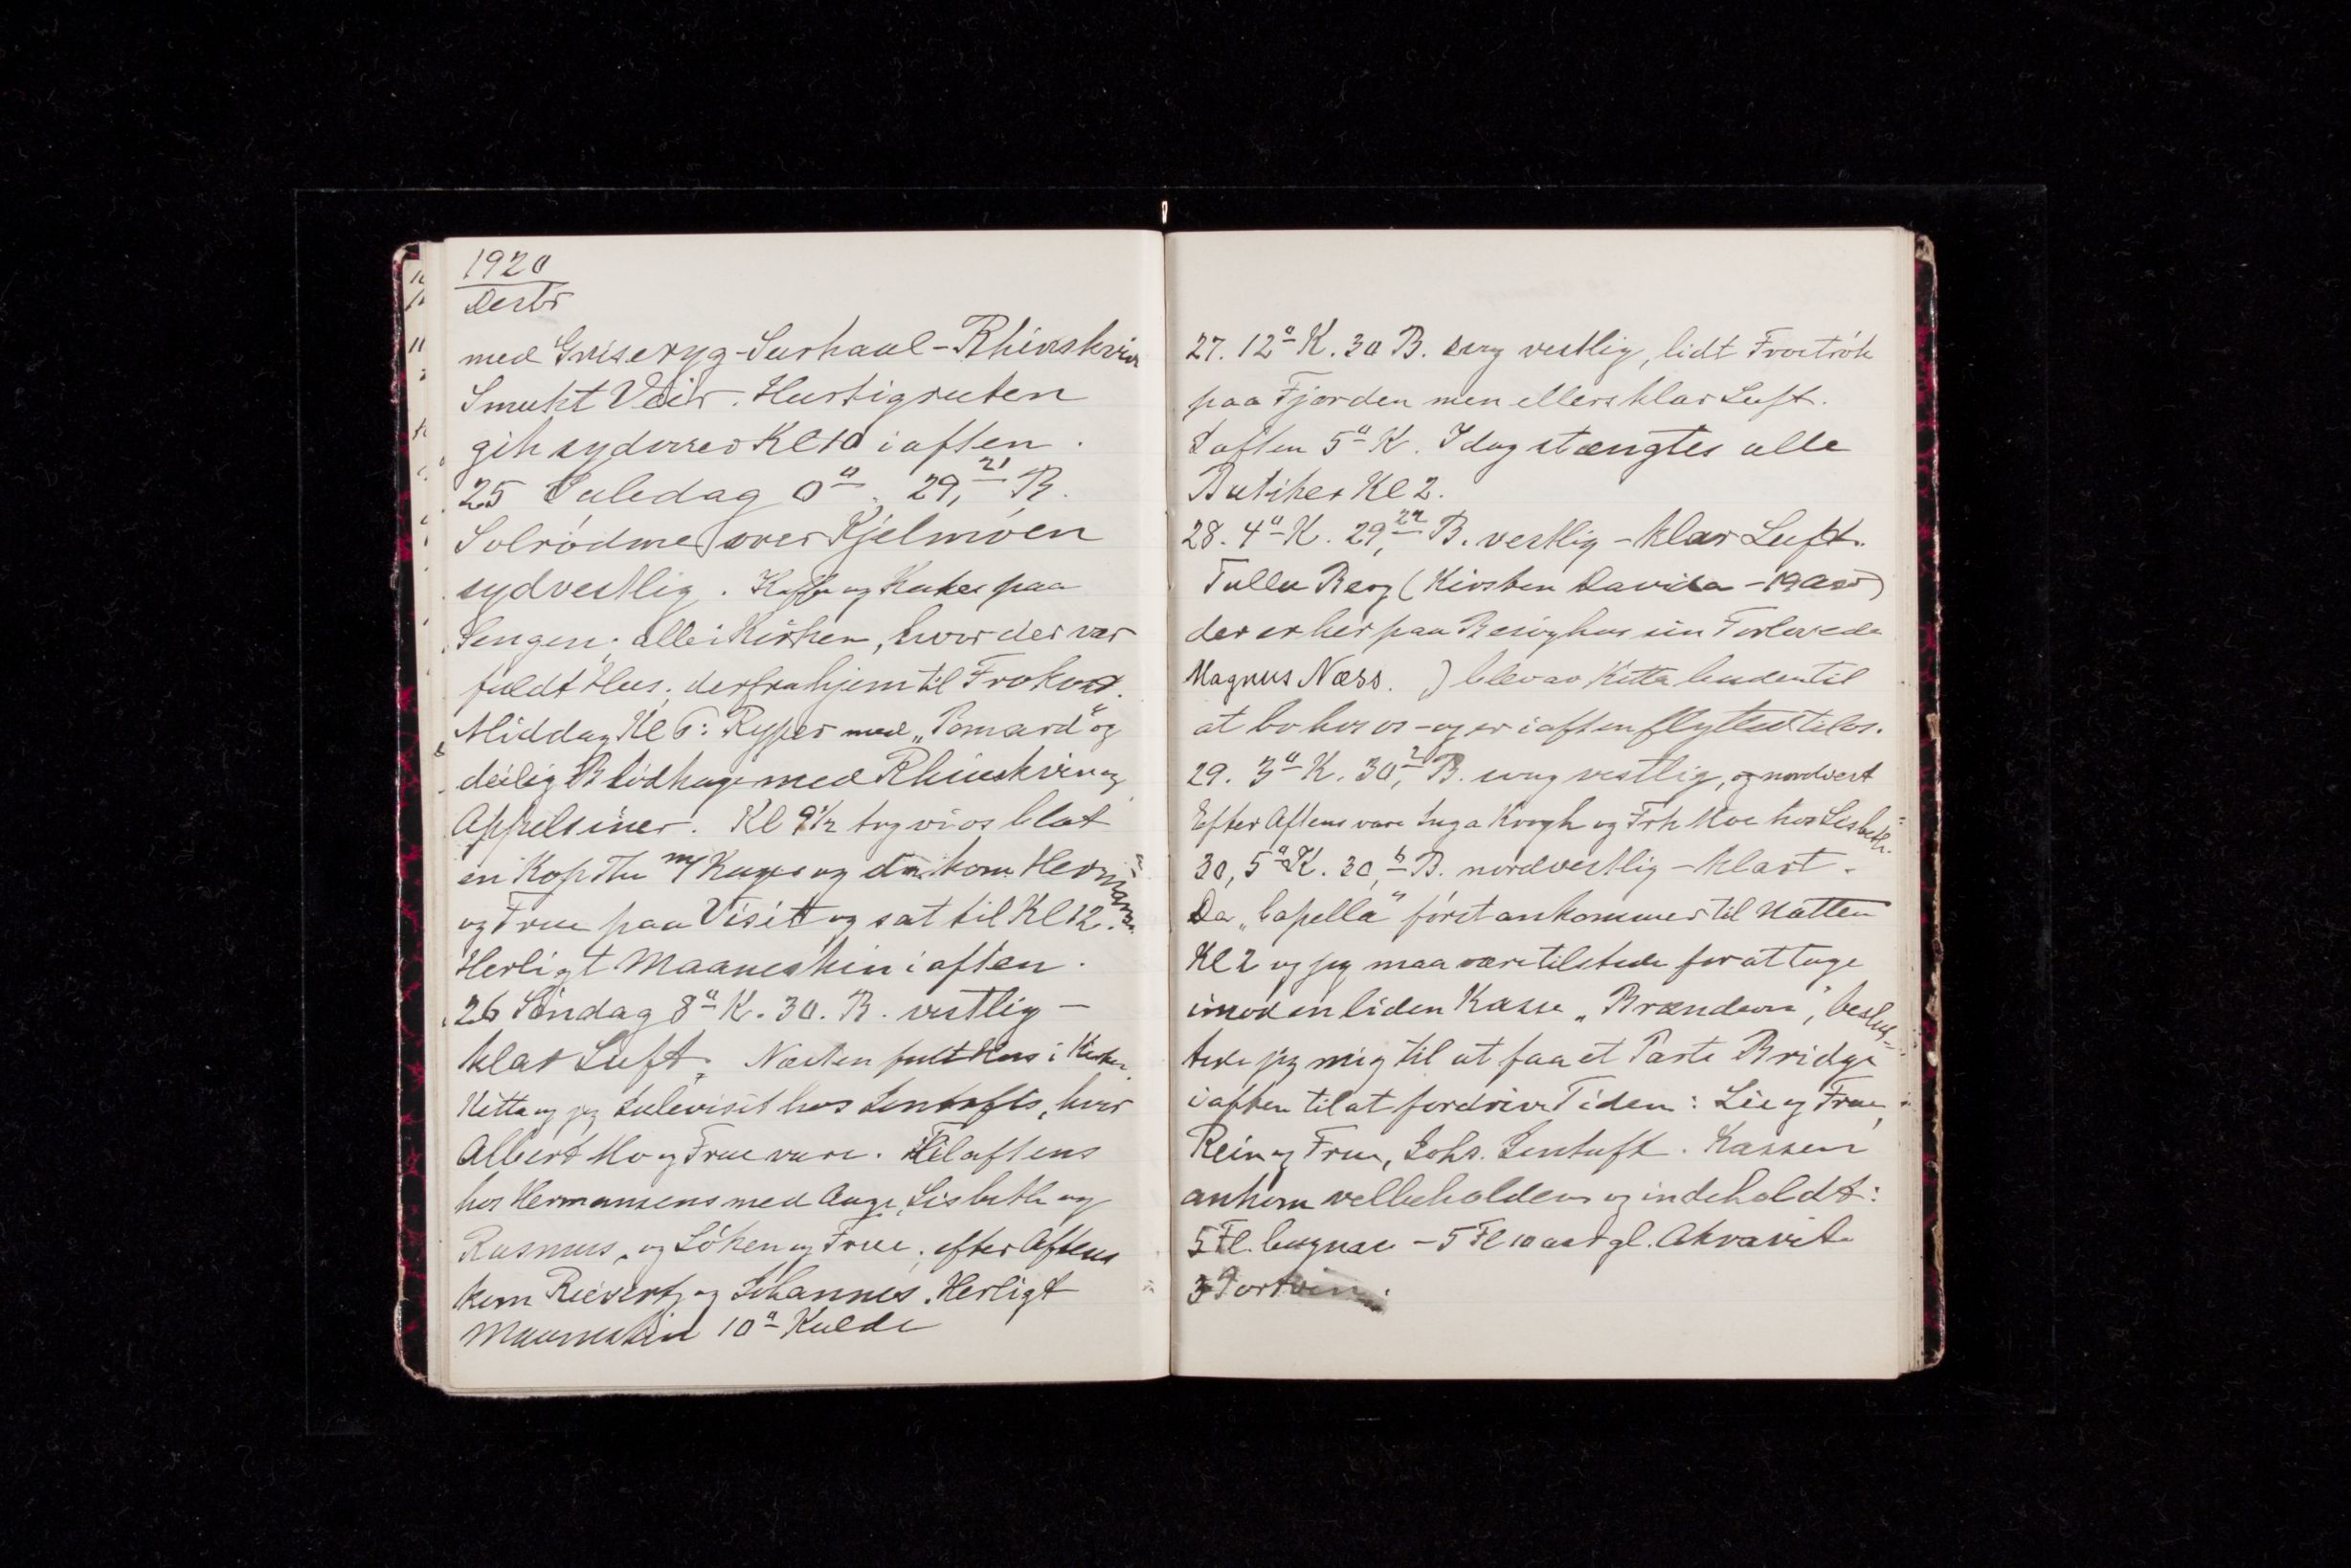 1920
Desbr
med Griseryg-Surkaal-Rhinskvin
Smukt Veir. Hurtigruten
gik sydover Kl 10 iaften.
25 Juledag 0°. 29,21 B.
Solrödme over Kjelmöen
sydvestlig. Kaffe og Kaker paa
Sengen; alle i Kirken, hvor der var
fuldt Hus. derfra hjem til Frokost.
Middag Kl 6: Ryper med „Pomard" og
deilig Blödkage med Rhinskvin og
Appelsiner. Kl 9½ tog vi os blot
en Kop The m/ Kager og da kom Hermansen
og Frue paa Visit og sat til Kl 12.
Herligt Maaneskin i aften.
26 Söndag 8° K. 30. B. vestlig -
klar Luft. Næsten fuldt Hus i Kirken
Kitta og jeg Julevisit hos Lentufts, hvor
Albert Mo og Frue vare. Tilaftens
hos Hermansens med Aage, Lisbeth og
Rasmus, og Löken og Frue; efter Aftens
kom Rievertz og Johannes. Herligt
Maaneskin 10° Kulde
27. 12° K. 30 B. svag vestlig, lidt Froströk
paa Fjorden men ellers klar Luft.
Iaften 5° K. Idag stængtes alle
Butiker Kl 2.
28. 4° K. 29,22 B. vestlig - klar Luft.
Tulla Berg (Kirsten Davida - 19 Aar)
der er her paa Besög hos sin Forlovede
Magnus Næss. ) blev av Kitta buden til
at bo hos os - og er iaften flyttet til os.
29. 3° K. 30,2 B. svag vestlig, og nordvest
Efter Aftens vare Inga Krogh og Frk Moe hos Lisbeth.
30, 5° K. 30,6 B. nordvestlig - klart.
Da „Capella" först ankommer til Natten
Kl 2 og jeg maa være tilstede for at tage
imod en liden Kasse „Brændevin", beslut-
tede jeg mig til at faa et Parti Bridge
iaften til at fordrive Tiden: Lie og Frue,
Rein og Frue, Johs. Lentuft. Kassen
ankom velbeholden og indeholdt:
5 Fl. Cognac - 5 Fl 10 aar gl. Akvavit
3 Portvin.